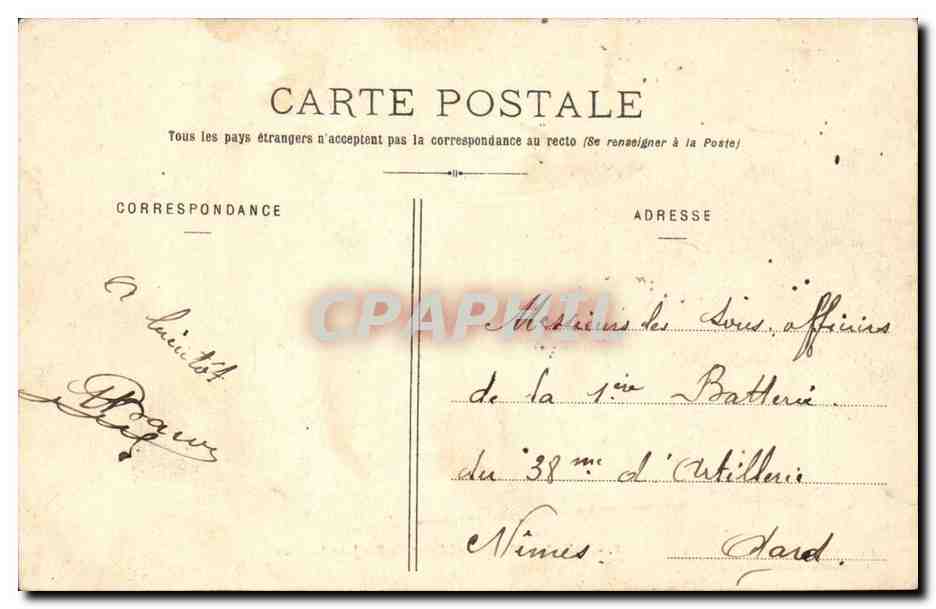 CARTE POSTALE
Tous les pays étrangers n'acceptent pas la correspondance au recto (Se renseigner à la Poste)
CORRESPONDANCE
ADRESSE
A bientôt
CPAPHIL
Messieurs les Sous. officiers
de la 1ère Batterie.
du 38me d'Artillerie
Nîmes. Gard.